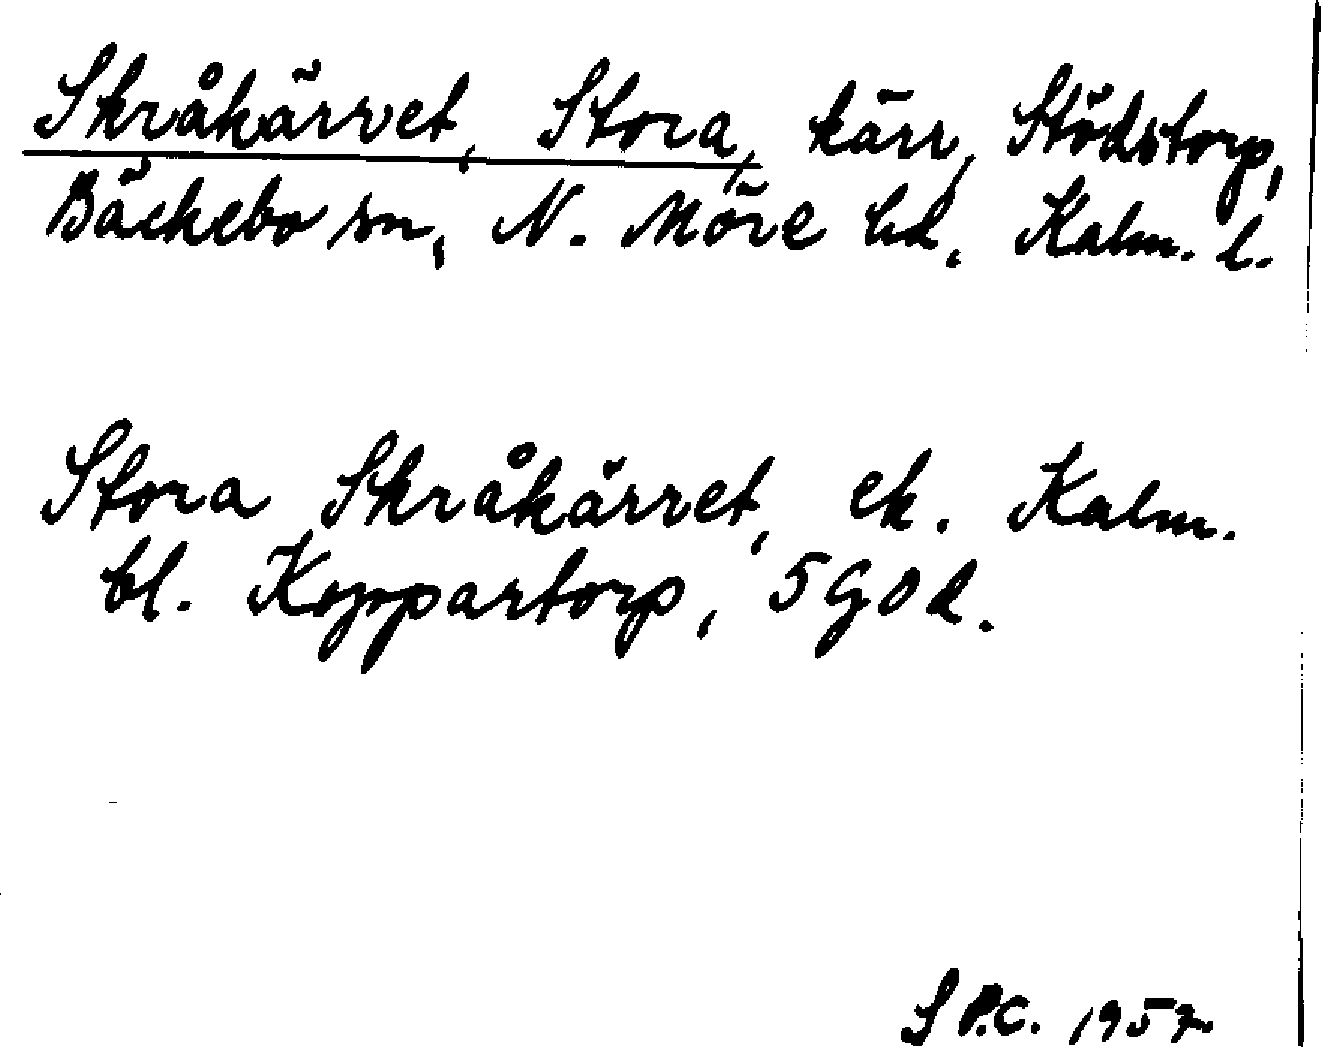 Skråkärret, Stora, kärr, Stödstorp,
Bäckebo sn, N. Möre hd, Kalm. l.
Stora Skråkärret, ek. Kalm.
bl. Koppartorp, 5G0d.
S P.C. 1957